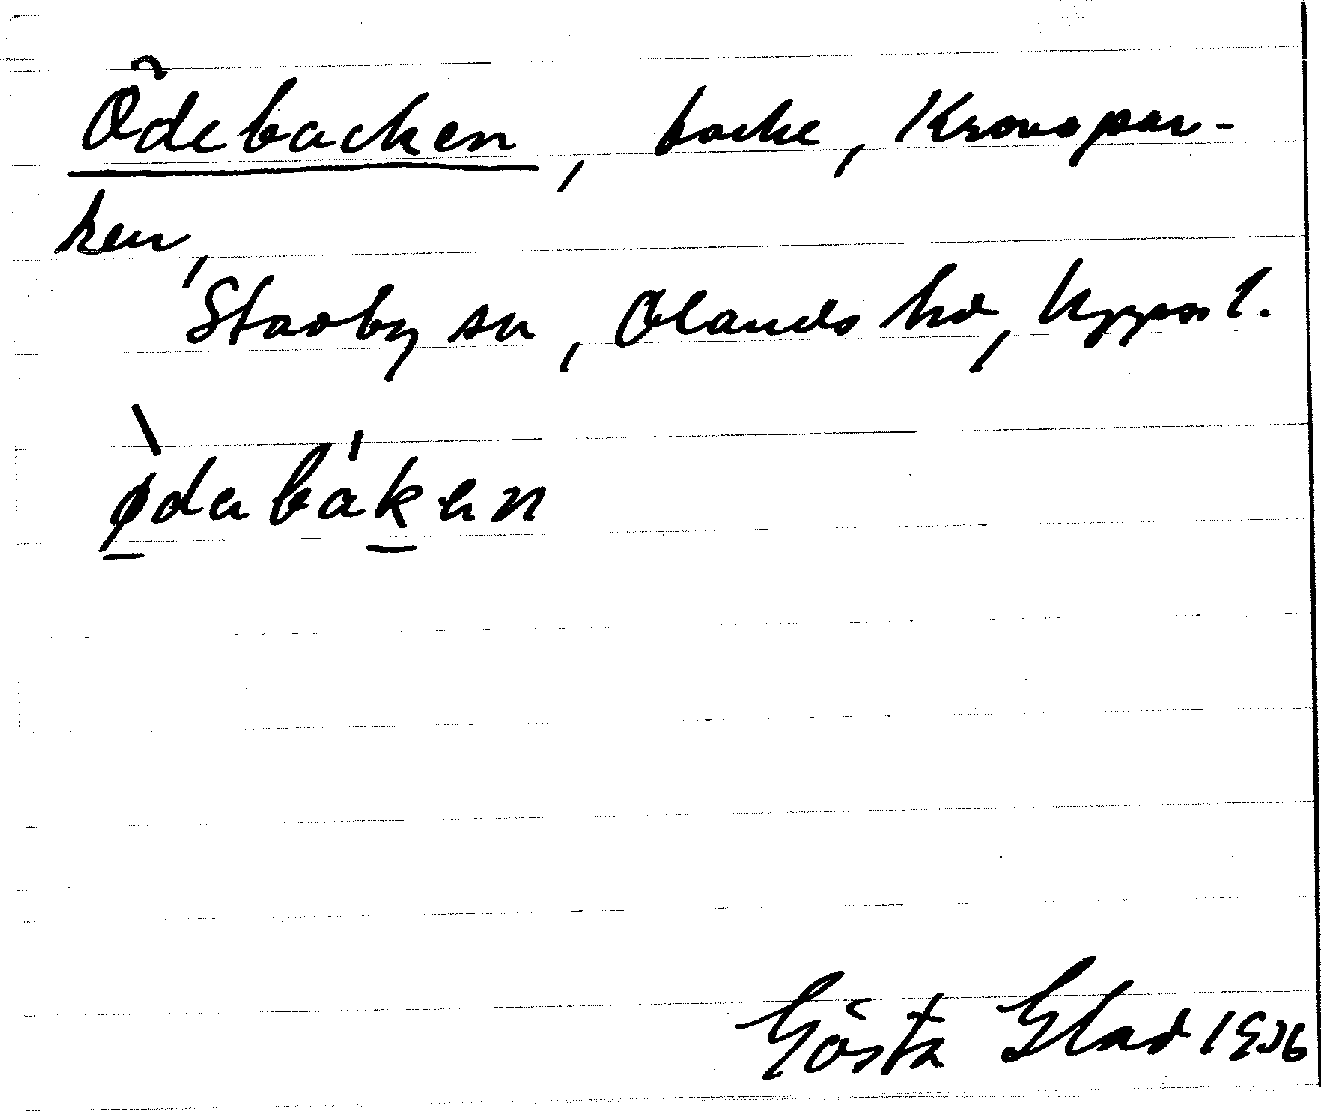 Ödebacken, backe, Kronopar-
ken,
Stavby sn, Olands hd, Upps. l.
ø̀dabákan
Gösta Glad 1936